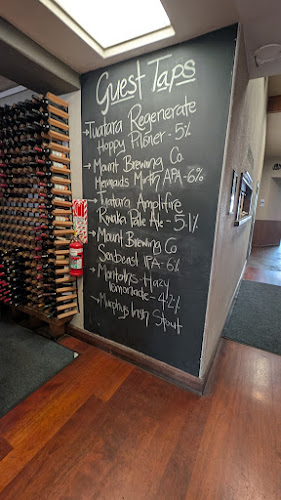 Guest Taps
→Tuatara Regenerate
Hoppy Pilsner - 5%
→Mount Brewing Co.
Mermaids Mirth APA - 6%
→Tuatara Amplifire
Riwaka Pale Ale - 5.1%
→Mount Brewing Co
Sunbeast IPA - 6%
→Moritolys - Hazy
lemonade - 4.2%
→Murphys Irish Stout